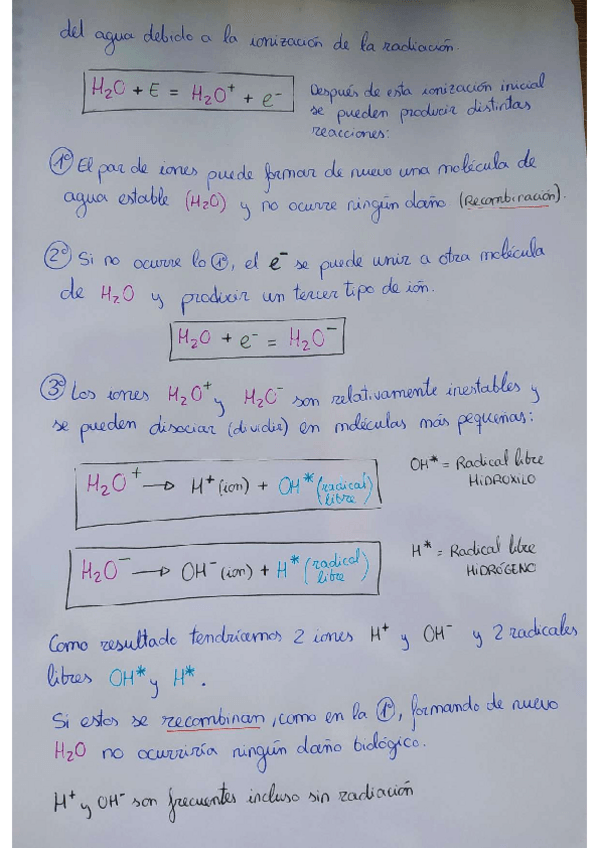 del agua debido a la ionización de la radiación.
H₂O + E = H₂O⁺ + e⁻
Después de esta ionización inicial
se pueden producir distintas
reacciones:
1º El par de iones puede formar de nuevo una molécula de
agua estable (H₂O) y no ocurre ningún daño (Recombinación).
2º Si no ocurre lo 1º, el e⁻ se puede unir a otra molécula
de H₂O y producir un tercer tipo de ión.
H₂O + e⁻ = H₂O⁻
3º Los iones H₂O⁺ y H₂O⁻ son relativamente inestables y
se pueden disociar (dividir) en moléculas más pequeñas:
H₂O⁺ → H⁺ (ion) + OH* (radical libre)
OH* = Radical libre
HIDROXILO
H₂O⁻ → OH⁻ (ion) + H* (radical libre)
H* = Radical libre
HIDRÓGENO
Como resultado tendríamos 2 iones H⁺ y OH⁻ y 2 radicales
libres OH* y H*.
Si estos se recombinan, como en la 1º, formando de nuevo
H₂O no ocurriría ningún daño biológico.
H⁺ y OH⁻ son frecuentes incluso sin radiación